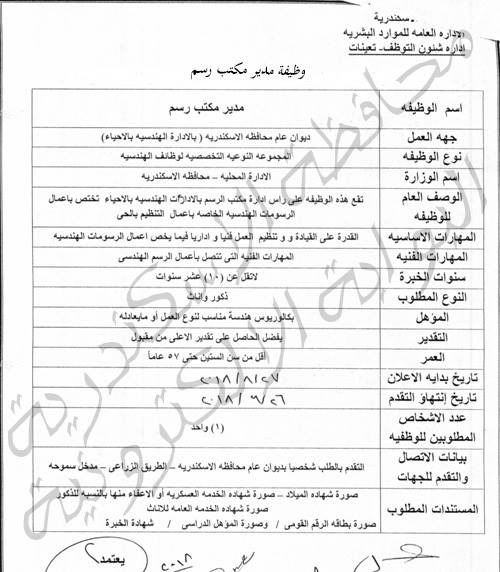 سكندرية
الاداره العامه للموارد البشريه
اداره شئون التوظف- تعينات
وظيفة مدير مكتب رسم
اسم الوظيفه
مدير مكتب رسم
جهه العمل
ديوان عام محافظه الاسكندريه ( بالادارة الهندسيه بالاحياء)
نوع الوظيفه
المجموعه النوعيه التخصصيه لوظائف الهندسيه
اسم الوزارة
الادارة المحليه – محافظه الاسكندريه
الوصف العام
للوظيفه
تقع هذه الوظيفه على راس ادارة مكتب الرسم بالادارات الهندسيه بالاحياء تختص باعمال
الرسومات الهندسيه الخاصه باعمال التنظيم بالحى
المهارات الاساسيه
القدرة على القيادة و و تنظيم العمل فنيا و اداريا فيما يخص اعمال الرسومات الهندسيه
المهارات الفنيه
المهارات الفنيه التى تتصل بأعمال الرسم الهندسى
سنوات الخبرة
لاتقل عن (١٠) عشر سنوات
النوع المطلوب
ذكور واناث
المؤهل
بكالوريوس هندسة مناسب لنوع العمل أو مايعادله
التقدير
يفضل الحاصل على تقدير الاعلى من مقبول
العمر
أقل من سن الستين حتى ٥٧ عاماً
تاريخ بدايه الاعلان
٢٠١٨/٨/٢٧
تاريخ إنتهاؤ التقدم
٢٠١٨/٩/٢٦
عدد الاشخاص
المطلوبين للوظفيه
(١) واحد
بيانات الاتصال
والتقدم للجهات
التقدم بالطلب شخصيا بديوان عام محافظه الاسكندريه – الطريق الزراعى – مدخل سموحه
المستندات المطلوب
صورة شهاده الميلاد – صورة شهاده الخدمه العسكريه أو الاعفاء منها بالنسبه للذكور
صورة شهاده الخدمه العامه للاناث
صورة بطاقه الرقم القومى / وصورة المؤهل الدراسى / شهادة الخبرة
يعتمد؟
٢٠١٨
محافظة الإسكندرية
البوابة الإلكترونية